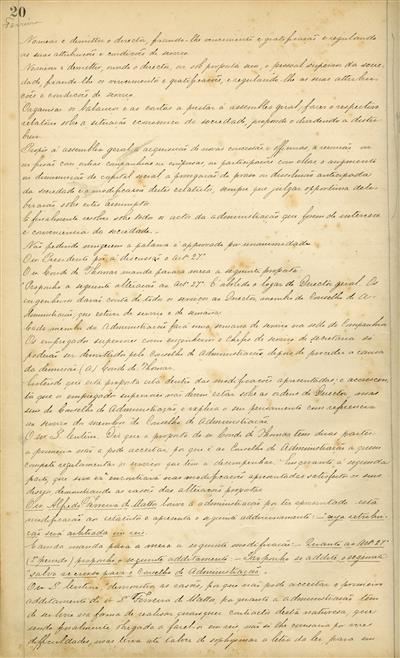 20
Ferreira
Nomear e demittir o director, fixando-lhe vencimento e gratificação e regulando
as suas attribuições e condições de serviço.
Nomear e demittir, ouvido o director, ou sob proposta sua, o pessoal superior da socie-
dade fixando-lhe os vencimentos e gratificações, e regulando-lhe as suas attribui-
ções e condições de serviço.
Organisar os balanços e as contas a prestar á assembléa geral, fazer o respectivo
relatorio sobre a situação economica da sociedade, propondo o dividendo a distri-
buir.
Propôr á assembléa geral a acquisição de novas concessões e officinas, a reunião ou
a fusão com outras companhias ou emprezas, as participações com ellas, o augmento
ou diminuição de capital social, a prorogação de prazo ou dissolução anticipada
da sociedade e a modificação destes estatutos, sempre que julgar opportuna deli-
beração sobre estes assumptos.
E finalmente resolver sobre todos os actos da administração que forem de interesse
e conveniencia da sociedade.
Não pedindo ninguem a palavra é approvado por unanimidade
O sr. Presidente põe á discussão o artº 27º
O sr. Conde de Thomar manda para a mesa a seguinte proposta
Proponho a seguinte alteração ao artº 27º É abolido o logar de Director geral. Os
engenheiros darão conta de todos os serviços ao Director, membro do Conselho de A-
dministração, que estiver de serviço e de semana.
Cada membro da Administração fará uma semana de serviço na séde da Companhia
Os empregados superiores como engenheiros e chefes de serviço de secretaria só
poderão ser demittidos pelo Conselho de Administração depois de proceder a causa
da demissão (a) Conde de Thomar.
Entende que esta proposta está dentro das modificações apresentadas; e accrescen-
ta que os empregados superiores não devem estar sobre as ordens do Director, mas
sim do Conselho de Administração e explica o seu pensamento com referencia
ao serviço dos membros do Conselho de Administração
O sr. S. Centeno. Diz que a proposta do sr. Conde de Thomar tem duas partes:
a primeira não a pode acceitar, por que é ao Conselho de Administração a quem
compete regulamentar os serviços que tem a desempenhar. Emquanto á segunda
parte, que s. ex.ª encontrará nas modificações apresentadas satisfeitos os seus
desejos, demonstrando as razões das alterações propostas
O sr. Alfredo Ferreira de Mattos louva a administração por ter apresentado esta
modificação ao estatuto e apresenta o seguinte additamento: _ cuja retribui-
ção será arbitrada em reis
E ainda manda para a mesa a seguinte modificação _ Quanto ao Artº 27º
proponho o seguinte additamento _ Proponho se addite o seguinte
"salvo recurso para o Conselho de Administração"
O sr. S. Centeno, demonstra as razões, por que não pode acceitar o primeiro
additamento do sr. Ferreira de Mattos, por quanto a administração tem
de ser livre na forma de realisar quaesquer contractos desta natureza, que
sendo finalmente obrigada a fazel-o em reis não se lhe evitaria por vezes
difficuldades, mas teria até talvez de sophysmar a letra da lei para em